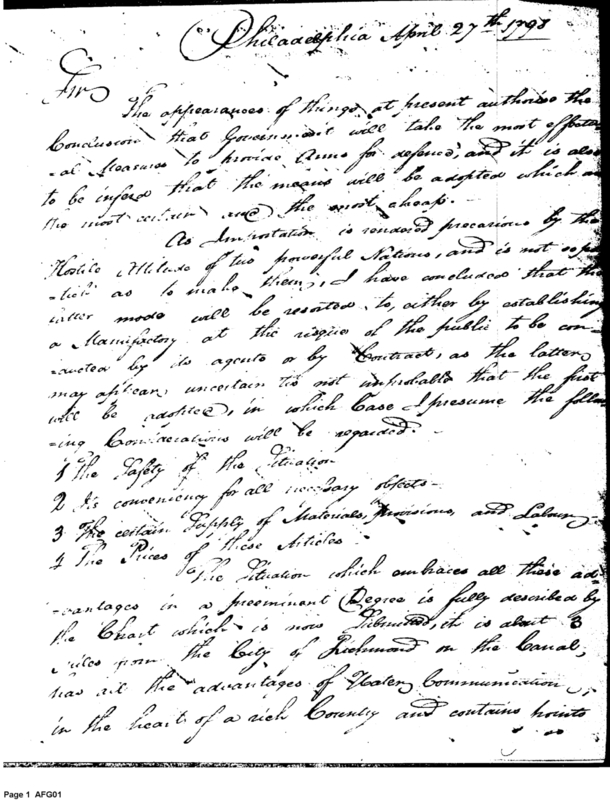 Philadelphia April 27th 1798
Sir
The appearances of things at present authorise the
Conclusion that Government will take the most effectu
-al Measures to provide Arms for defence, and it is also
to be infered that the means will be adopted which are
the most certain and the most cheap.
As Importation is rendered precarious by the
Hostile Attitude of two powerful Nations, and is not so
as to make them, I have concluded that the
latter mode will be resorted to, either by establishing
a Manufactory at the risque of the public to be con-
-ducted by its agents or by Contract, as the latter
may appear uncertain tis not improbable that the first
will be adopted, in which Case I presume the follow
-ing Considerations will be regarded.
1 The Safety of the Situation
2 Its conveniency for all necessary objects-
3 The certain Supply of Materials, Provisions, and Labour-
4 The Prices of these Articles
The Situation which embraces all these ad-
-vantages in a preeminent Degree is fully described by
the Chart which is now Submitted, it is about 3
miles from the City of Richmond on the Canal,
has all the advantages of Water Communication,
in the heart of a rich Country and contains points
Page 1 AFG01